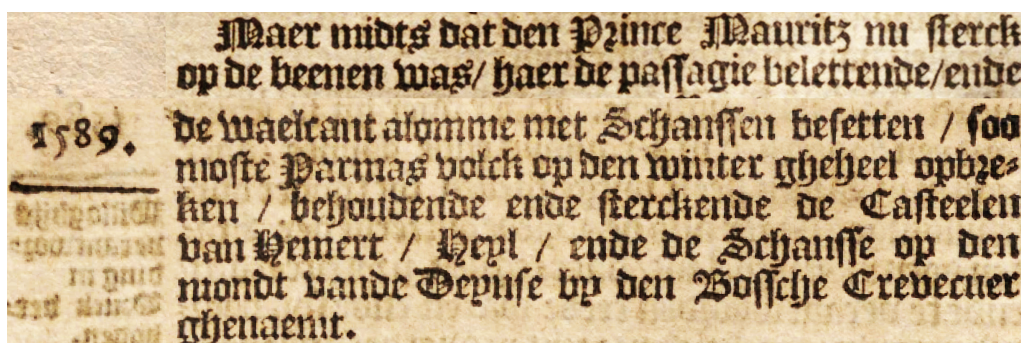 Maer midts dat den Prince Mauritz nu sterck
op de beenen was/ haer de passagie belettende/ende
1589.
de waelcant alomme met Schanssen besetten / soo
moste Parmas volck op den winter gheheel opbre-
ken / behoudende ende sterckende de Casteelen
van Hemert / Heyl / ende de Schansse op den
mondt vande Deyuse by den Bossche Crevecuer
ghenaemt.